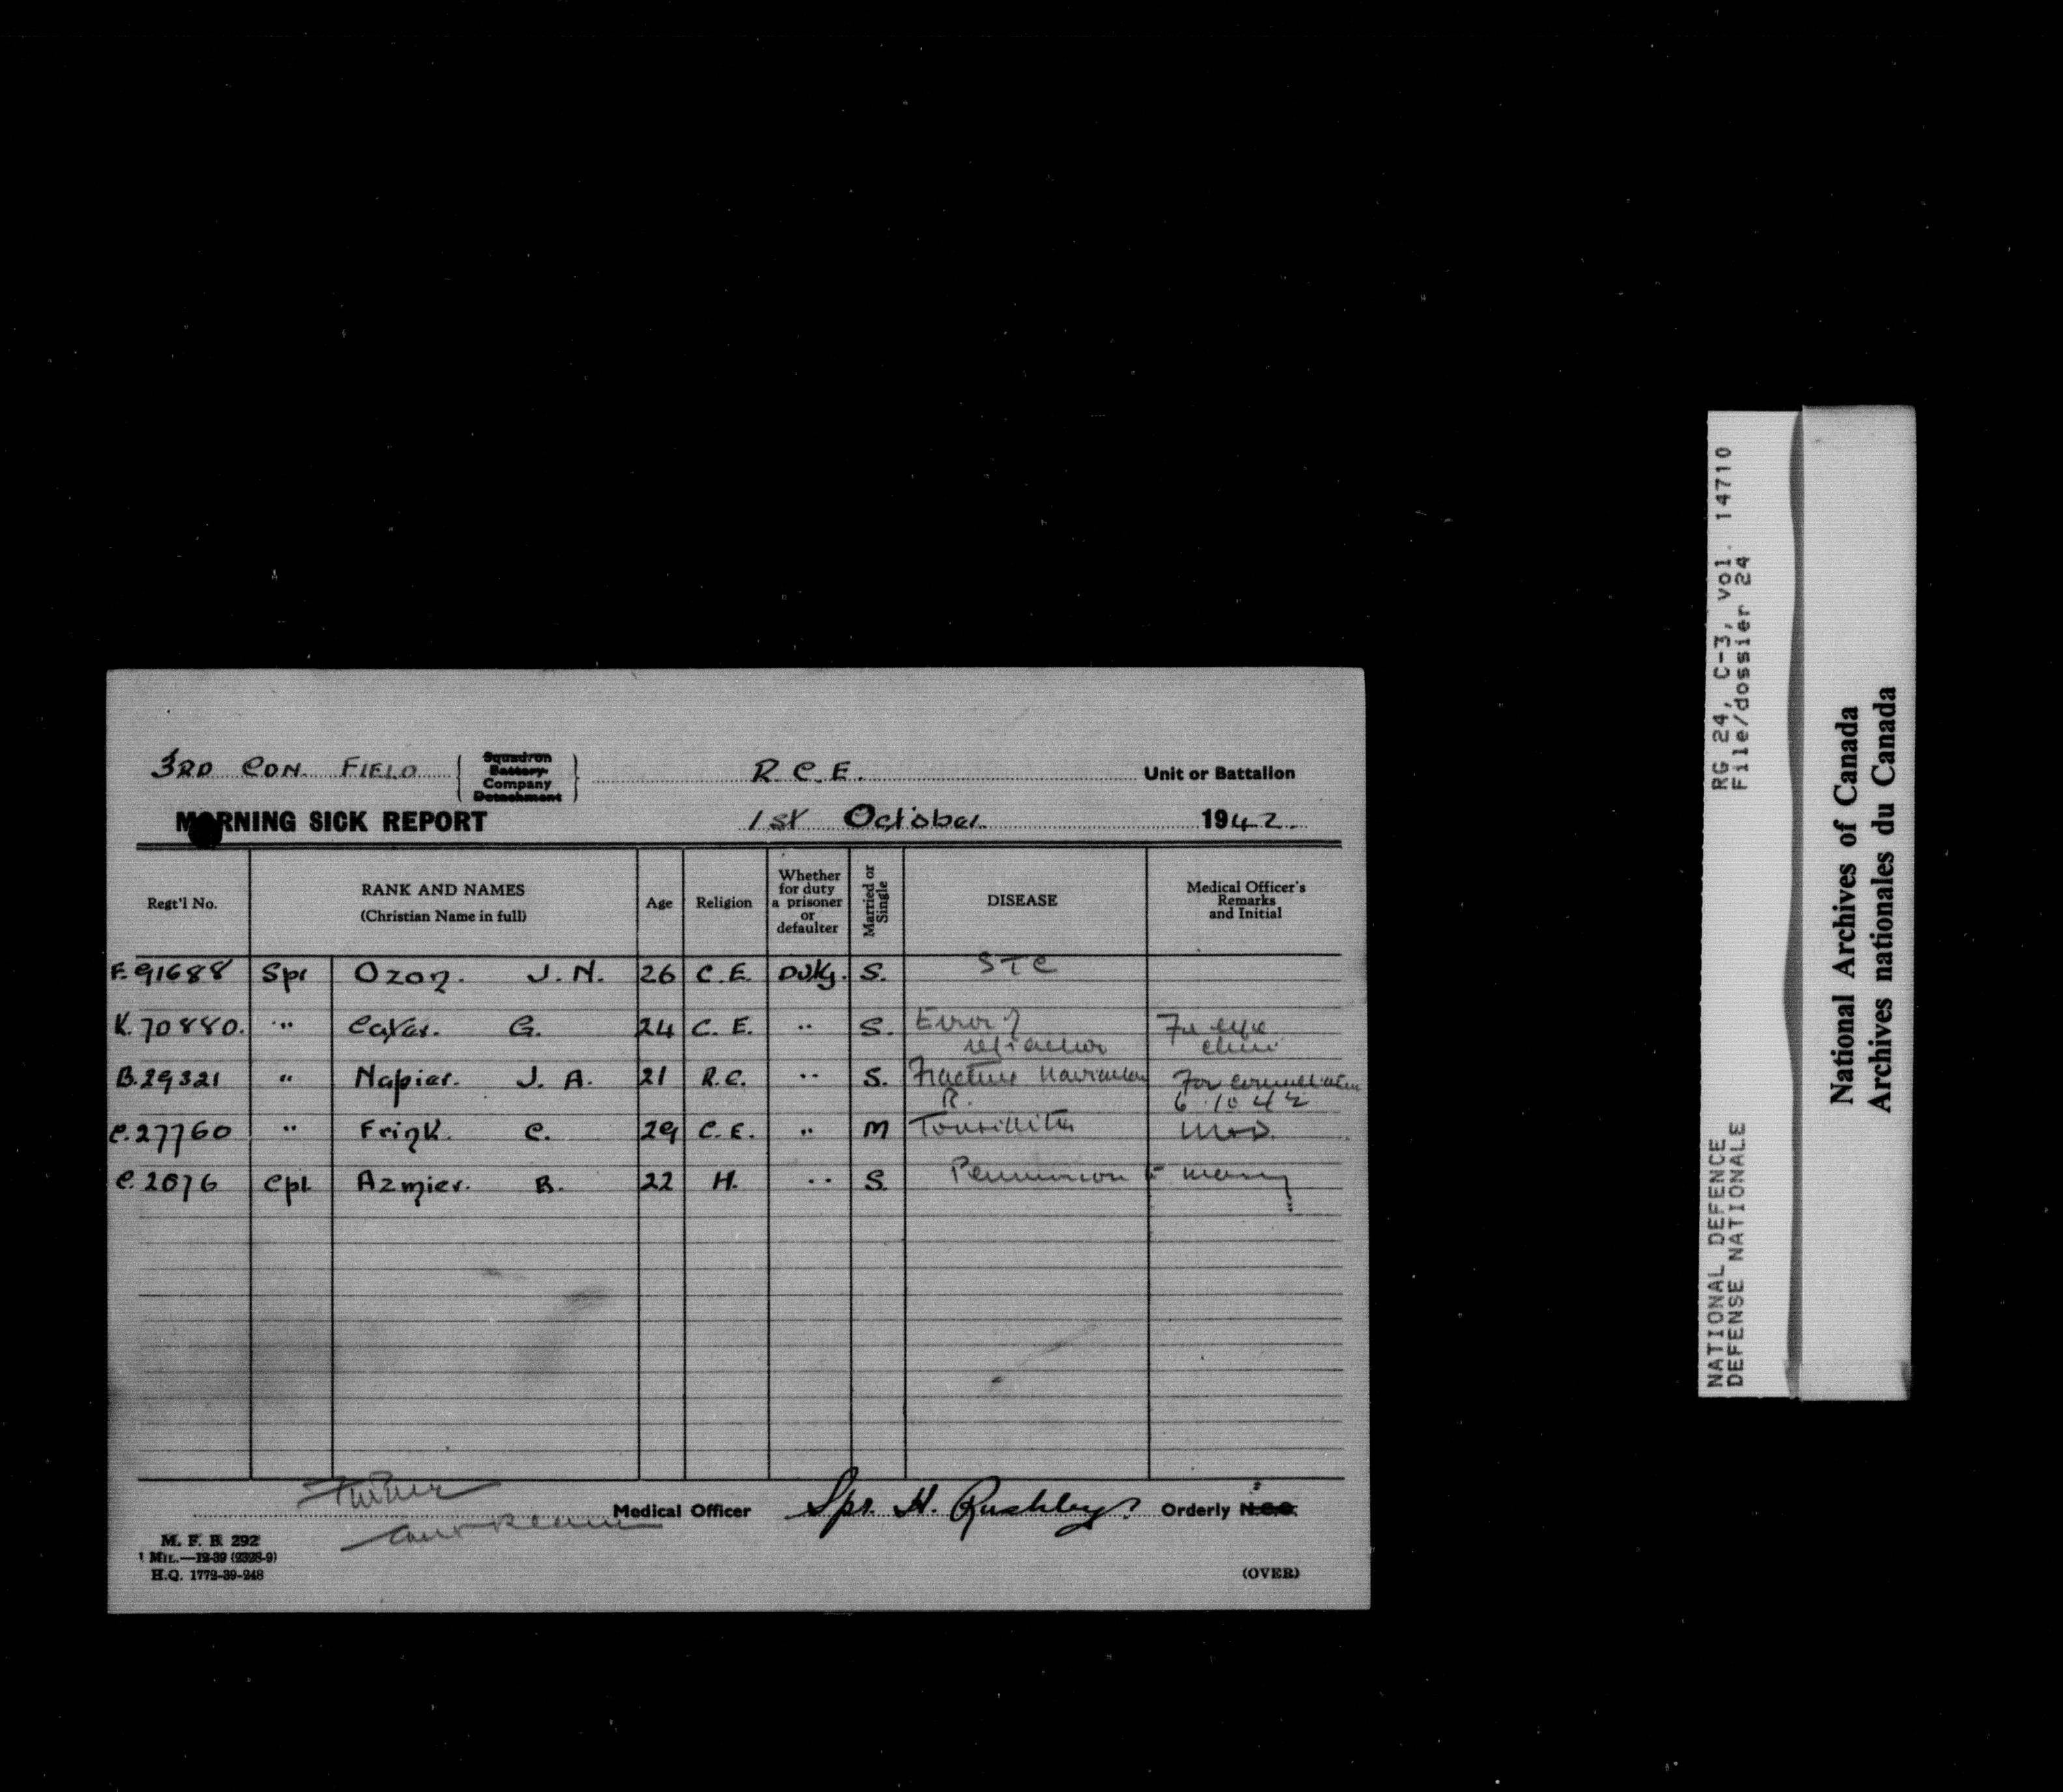 3RD CON. FIELD { Squadron Battery Company Detachment } R.C.E. Unit or Battalion
MORNING SICK REPORT 1st October 1942
Regt'l No. RANK AND NAMES (Christian Name in full) Age Religion Whether for duty a prisoner or defaulter Married or Single DISEASE Medical Officer's Remarks and Initial
F.91688 Spr Ozon. J.N. 26 C.E. Duty. S. STC
K.70880. " G. 24 C.E. " S. Error of refraction For eye clinic
B.29321 " Napier. J.A. 21 R.C. " S. Fracture navicular R. For consultation 6.10.42
C.27760 " Frink. C. 29 C.E. " M Tonsillitis M&D.
C.2076 Cpl. Azmier. B. 22 H. " S. Permission to marry
Medical Officer Spr. H. Rushby. Orderly N.C.O.
M. F. B. 292
1 MIL.—12-39 (2328-9)
H.Q. 1772-39-248
(OVER)
RG 24, C-3, vol. 14710
File/dossier 24
NATIONAL DEFENCE
DEFENSE NATIONALE
National Archives of Canada
Archives nationales du Canada